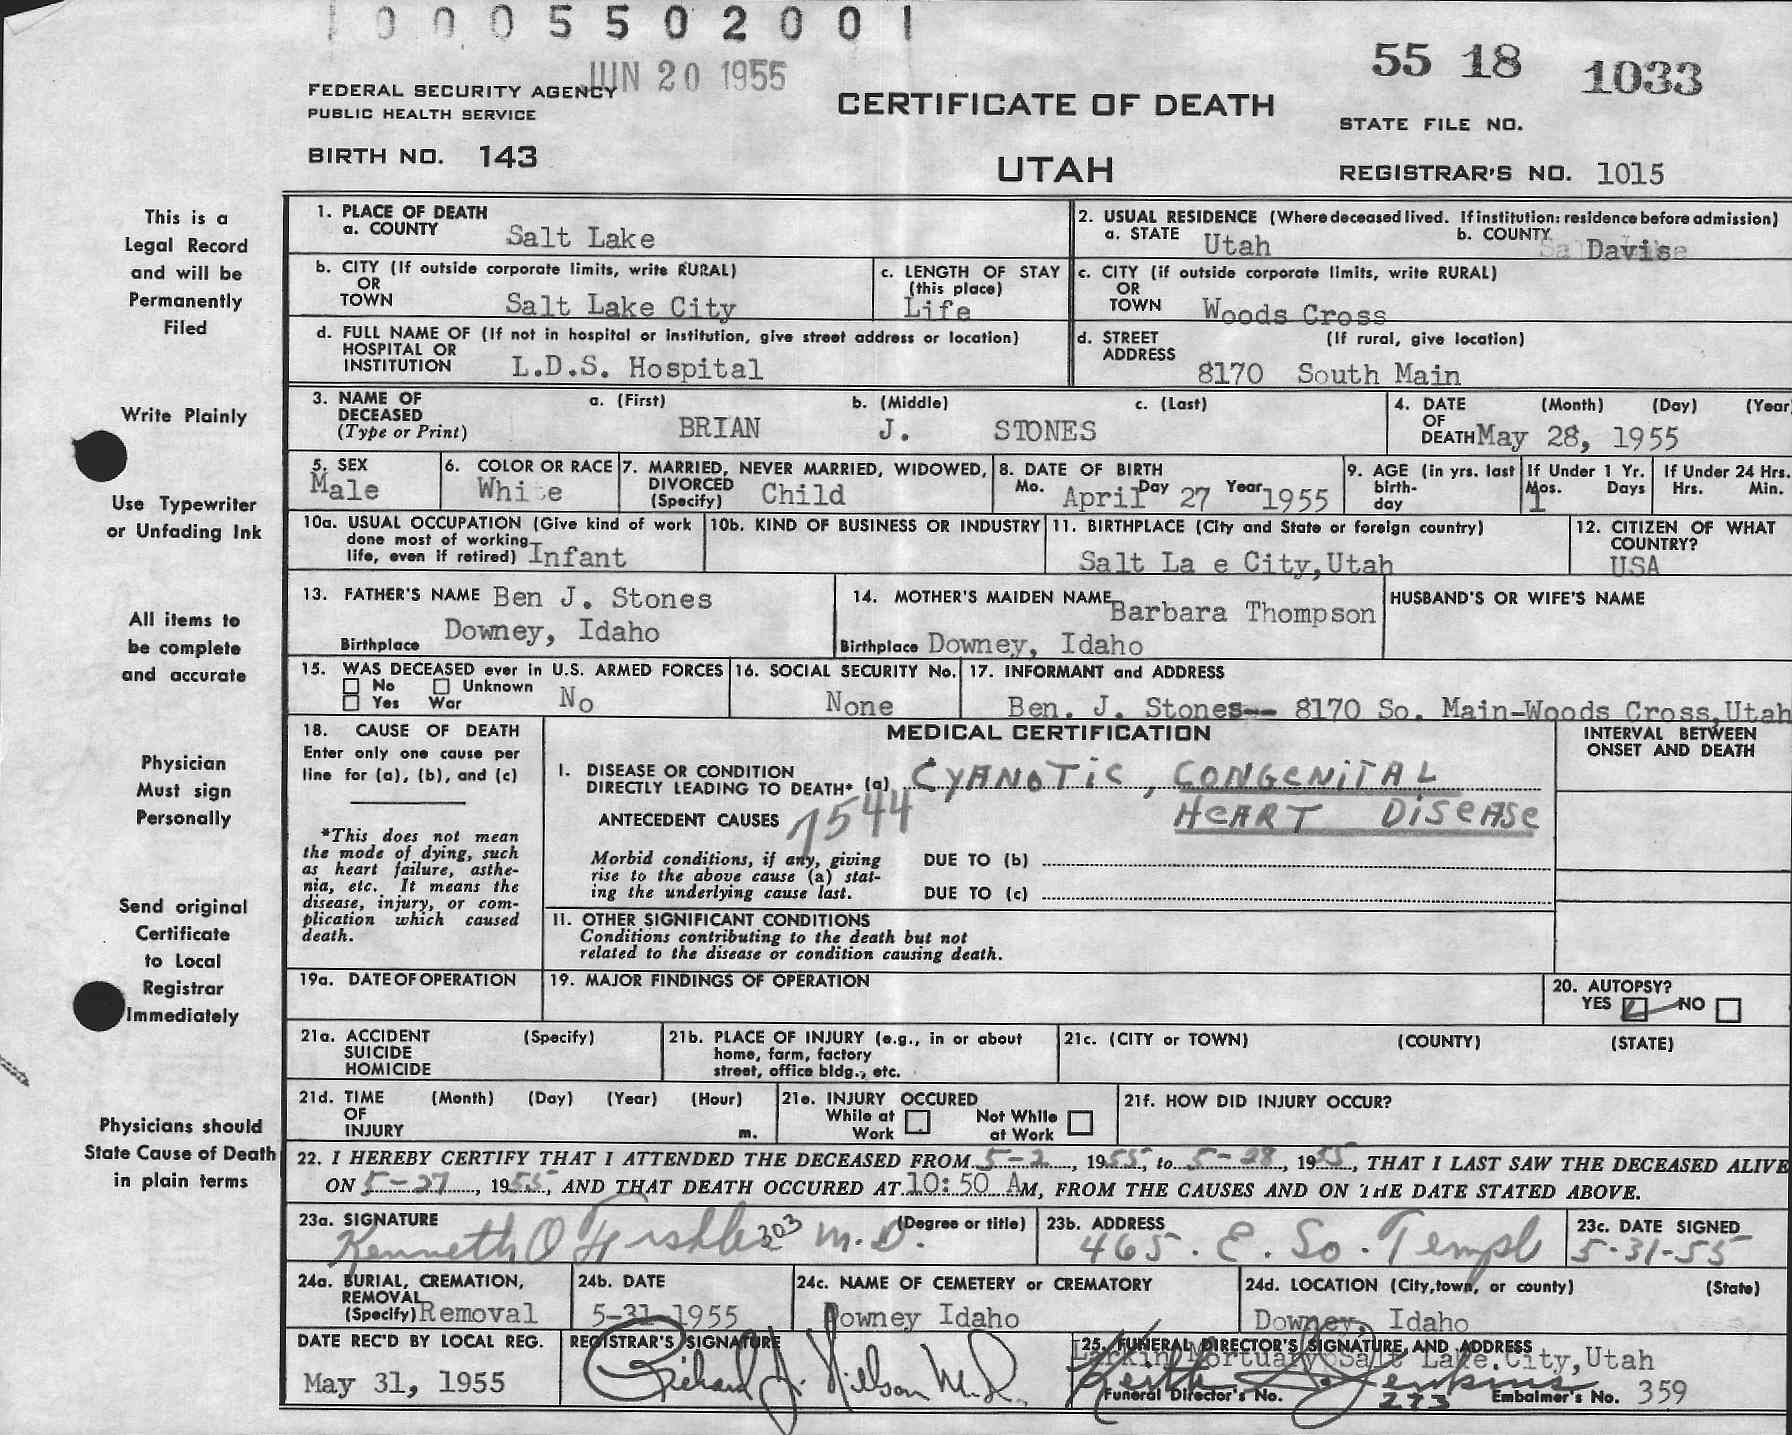 1 0 0 0 5 5 0 2 0 0 1
JUN 20 1955
55 18 1033
FEDERAL SECURITY AGENCY
PUBLIC HEALTH SERVICE
CERTIFICATE OF DEATH
STATE FILE NO.
BIRTH NO. 143
UTAH
REGISTRAR'S NO. 1015
This is a
Legal Record
and will be
Permanently
Filed
Write Plainly
Use Typewriter
or Unfading Ink
All items to
be complete
and accurate
Physician
Must sign
Personally
Send original
Certificate
to Local
Registrar
Immediately
Physicians should
State Cause of Death
in plain terms
1. PLACE OF DEATH
a. COUNTY Salt Lake
2. USUAL RESIDENCE (Where deceased lived. If institution: residence before admission)
a. STATE Utah b. COUNTY Davis
b. CITY (If outside corporate limits, write RURAL)
OR
TOWN Salt Lake City
c. LENGTH OF STAY
(this place)
Life
c. CITY (if outside corporate limits, write RURAL)
OR
TOWN Woods Cross
d. FULL NAME OF (If not in hospital or institution, give street address or location)
HOSPITAL OR
INSTITUTION L.D.S. Hospital
d. STREET (If rural, give location)
ADDRESS
8170 South Main
3. NAME OF a. (First) b. (Middle) c. (Last)
DECEASED
(Type or Print) BRIAN J. STONES
4. DATE (Month) (Day) (Year
OF
DEATH May 28, 1955
5. SEX
Male
6. COLOR OR RACE
White
7. MARRIED, NEVER MARRIED, WIDOWED,
DIVORCED
(Specify) Child
8. DATE OF BIRTH
Mo. April Day 27 Year 1955
9. AGE (in yrs. last
birth-
day
If Under 1 Yr.
Mos. Days
1
If Under 24 Hrs.
Hrs. Min.
10a. USUAL OCCUPATION (Give kind of work
done most of working
life, even if retired) Infant
10b. KIND OF BUSINESS OR INDUSTRY
11. BIRTHPLACE (City and State or foreign country)
Salt La e City,Utah
12. CITIZEN OF WHAT
COUNTRY?
USA
13. FATHER'S NAME Ben J. Stones
Birthplace Downey, Idaho
14. MOTHER'S MAIDEN NAME Barbara Thompson
Birthplace Downey, Idaho
HUSBAND'S OR WIFE'S NAME
15. WAS DECEASED ever in U.S. ARMED FORCES
No Unknown
Yes War No
16. SOCIAL SECURITY No.
None
17. INFORMANT and ADDRESS
Ben. J. Stones-- 8170 So. Main-Woods Cross,Utah
18. CAUSE OF DEATH
Enter only one cause per
line for (a), (b), and (c)
*This does not mean
the mode of dying, such
as heart failure, asthe-
nia, etc. It means the
disease, injury, or com-
plication which caused
death.
MEDICAL CERTIFICATION
INTERVAL BETWEEN
ONSET AND DEATH
I. DISEASE OR CONDITION
DIRECTLY LEADING TO DEATH* (a) CYANOTIC, CONGENITAL
HEART DISEASE
ANTECEDENT CAUSES 7544
Morbid conditions, if any, giving
rise to the above cause (a) stat-
ing the underlying cause last.
DUE TO (b)
DUE TO (c)
II. OTHER SIGNIFICANT CONDITIONS
Conditions contributing to the death but not
related to the disease or condition causing death.
19a. DATE OF OPERATION
19. MAJOR FINDINGS OF OPERATION
20. AUTOPSY?
YES NO
21a. ACCIDENT (Specify)
SUICIDE
HOMICIDE
21b. PLACE OF INJURY (e.g., in or about
home, farm, factory
street, office bldg., etc.
21c. (CITY or TOWN) (COUNTY) (STATE)
21d. TIME (Month) (Day) (Year) (Hour)
OF
INJURY m.
21e. INJURY OCCURED
While at Work Not While at Work
21f. HOW DID INJURY OCCUR?
22. I HEREBY CERTIFY THAT I ATTENDED THE DECEASED FROM 5-2, 1955, to 5-28, 1955, THAT I LAST SAW THE DECEASED ALIVE
ON 5-27, 1955, AND THAT DEATH OCCURED AT 10:50 AM, FROM THE CAUSES AND ON THE DATE STATED ABOVE.
23a. SIGNATURE (Degree or title)
Kenneth O 303 M.D.
23b. ADDRESS
465. E. So. Templ
23c. DATE SIGNED
5-31-55
24a. BURIAL, CREMATION,
REMOVAL
(Specify) Removal
24b. DATE
5-31-1955
24c. NAME OF CEMETERY or CREMATORY
Downey Idaho
24d. LOCATION (City,town, or county) (State)
Downey, Idaho
DATE REC'D BY LOCAL REG.
May 31, 1955
REGISTRAR'S SIGNATURE
Richard J. Nilson M.D.
25. FUNERAL DIRECTOR'S SIGNATURE, AND ADDRESS
Larkin Mortuary Salt Lake City,Utah
Keith Jenkins
Funeral Director's No. 273 Embalmer's No. 359